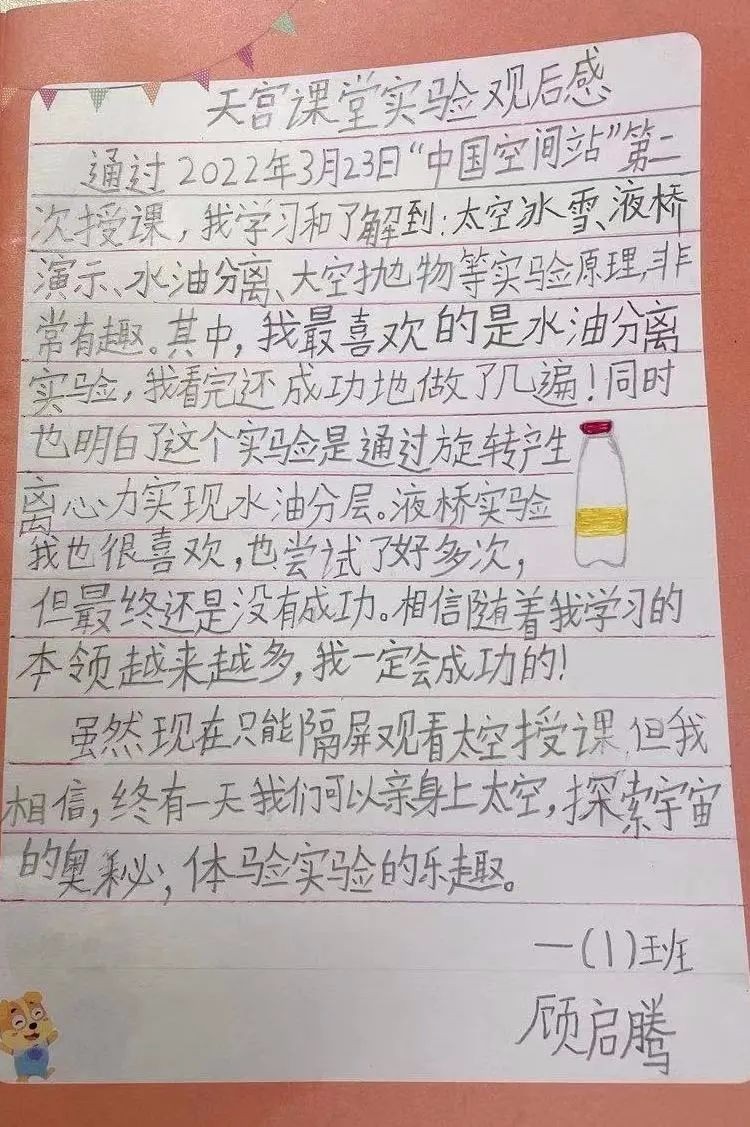 天宫课堂实验观后感
通过2022年3月23日“中国空间站”第二
次授课,我学习和了解到:太空冰雪、液桥
演示、水油分离、太空抛物等实验原理,非
常有趣。其中,我最喜欢的是水油分离
实验,我看完还成功地做了几遍!同时
也明白了这个实验是通过旋转产生
离心力实现水油分层。液桥实验
我也很喜欢,也尝试了好多次,
但最终还是没有成功。相信随着我学习的
本领越来越多,我一定会成功的!
虽然现在只能隔屏观看太空授课,但我
相信,终有一天我们可以亲身上太空,探索宇宙
的奥秘,体验实验的乐趣。
一(1)班
顾启腾